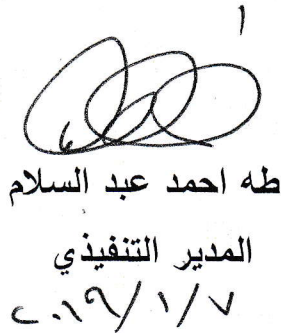 طه احمد عبد السلام
المدير التنفيذي
٢٠١٩/١/٧